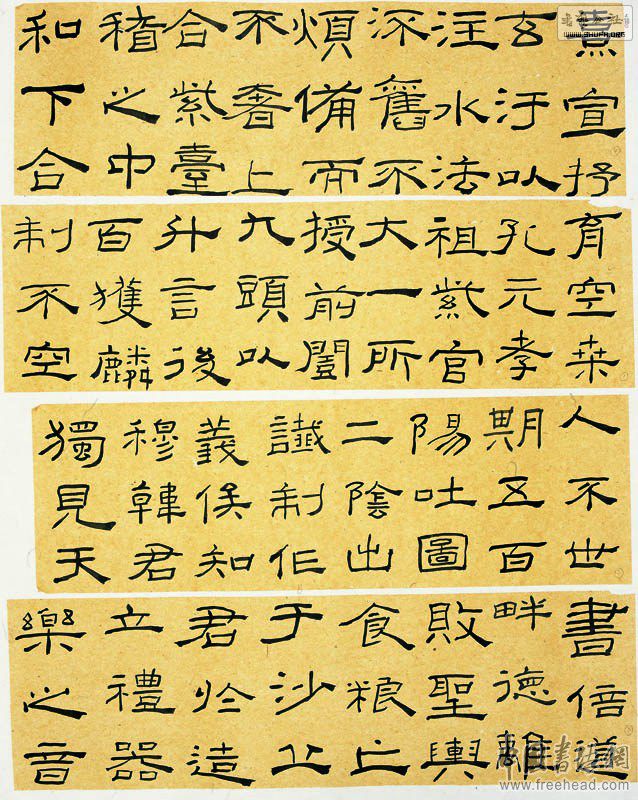 熹宣抒
玄汙以
注水流
法舊不
煩備而
不奢上
合紫臺
稽之中
和下合
育空桒
孔元孝
祖紫宮
大一所
授前闓
九頭以
升言後
百獲麟
制不空
人不世
期五百
陽吐圖
二陰出
讖制作
義俟知
穆韓君
獨見天
書倍道
畔德離
敗聖輿
食粮亡
于沙丘
君於造
立禮器
樂之音
WWW.SHUFA.ORG
中国书法网
www.freehead.com